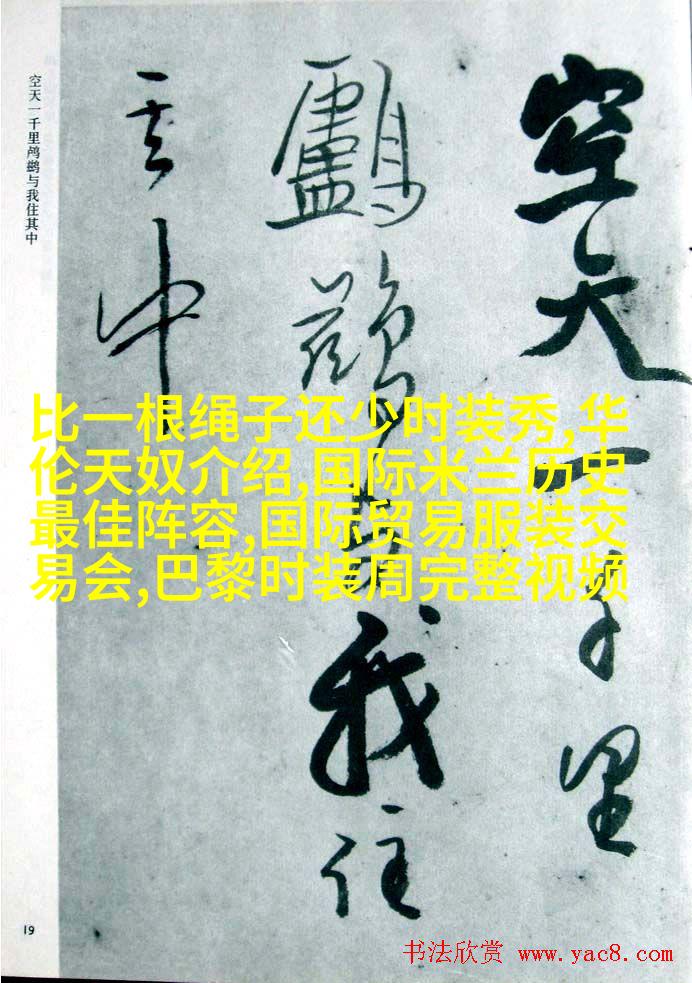 空天一千里
鸕鷀我住
其中
空天一千里鸬鹚与我住其中
比一根绳子还少时装秀,华
伦天奴介绍,国际米兰历史
最佳阵容,国际贸易服装交
易会,巴黎时装周完整视频
19
书法欣赏 www.yac8.com